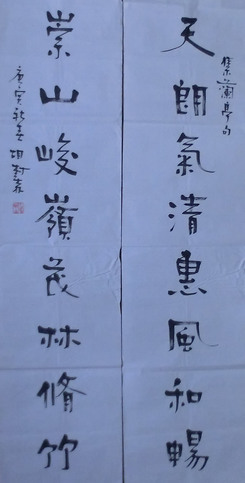 集蘭亭句
天朗氣清惠風和暢
崇山峻嶺茂林脩竹
庚寅新春